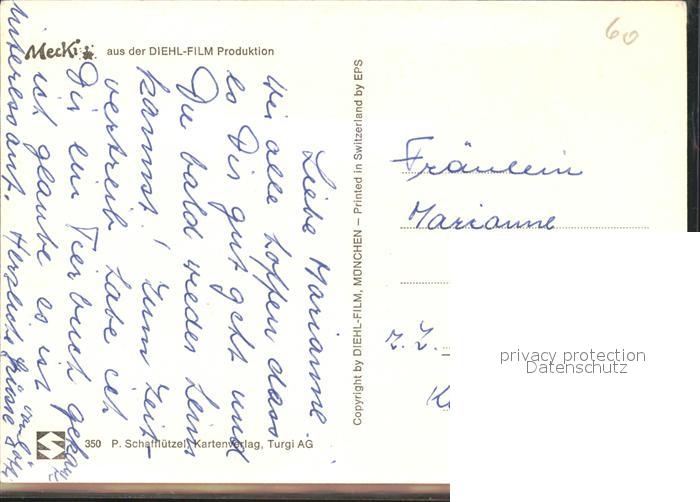 MecKi aus der DIEHL-FILM Produktion
60
Liebe Marianne.
Wir alle hoffen dass
es Dir gut geht und
Du bald wieder heim
kannst! Zum Zeit-
vertreib habe ich
Dir ein Tierbuch gekauft
ich glaube es ist
interessant. Herzliche Grüsse
Copyright by DIEHL-FILM, MÜNCHEN – Printed in Switzerland by EPS
Fräulein
Marianne
z. Z.
350 P. Schafflützel, Kartenverlag, Turgi AG
privacy protection
Datenschutz